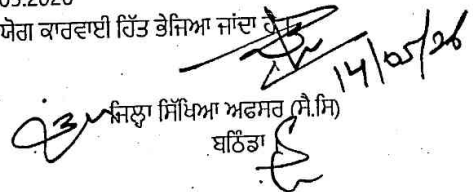 05.2026
ਯੋਗ ਕਾਰਵਾਈ ਹਿੱਤ ਭੇਜਿਆ ਜਾਂਦਾ ਹੈ।
14/05/26
ਜਿਲ੍ਹਾ ਸਿੱਖਿਆ ਅਫਸਰ (ਸੈ.ਸਿ)
ਬਠਿੰਡਾ